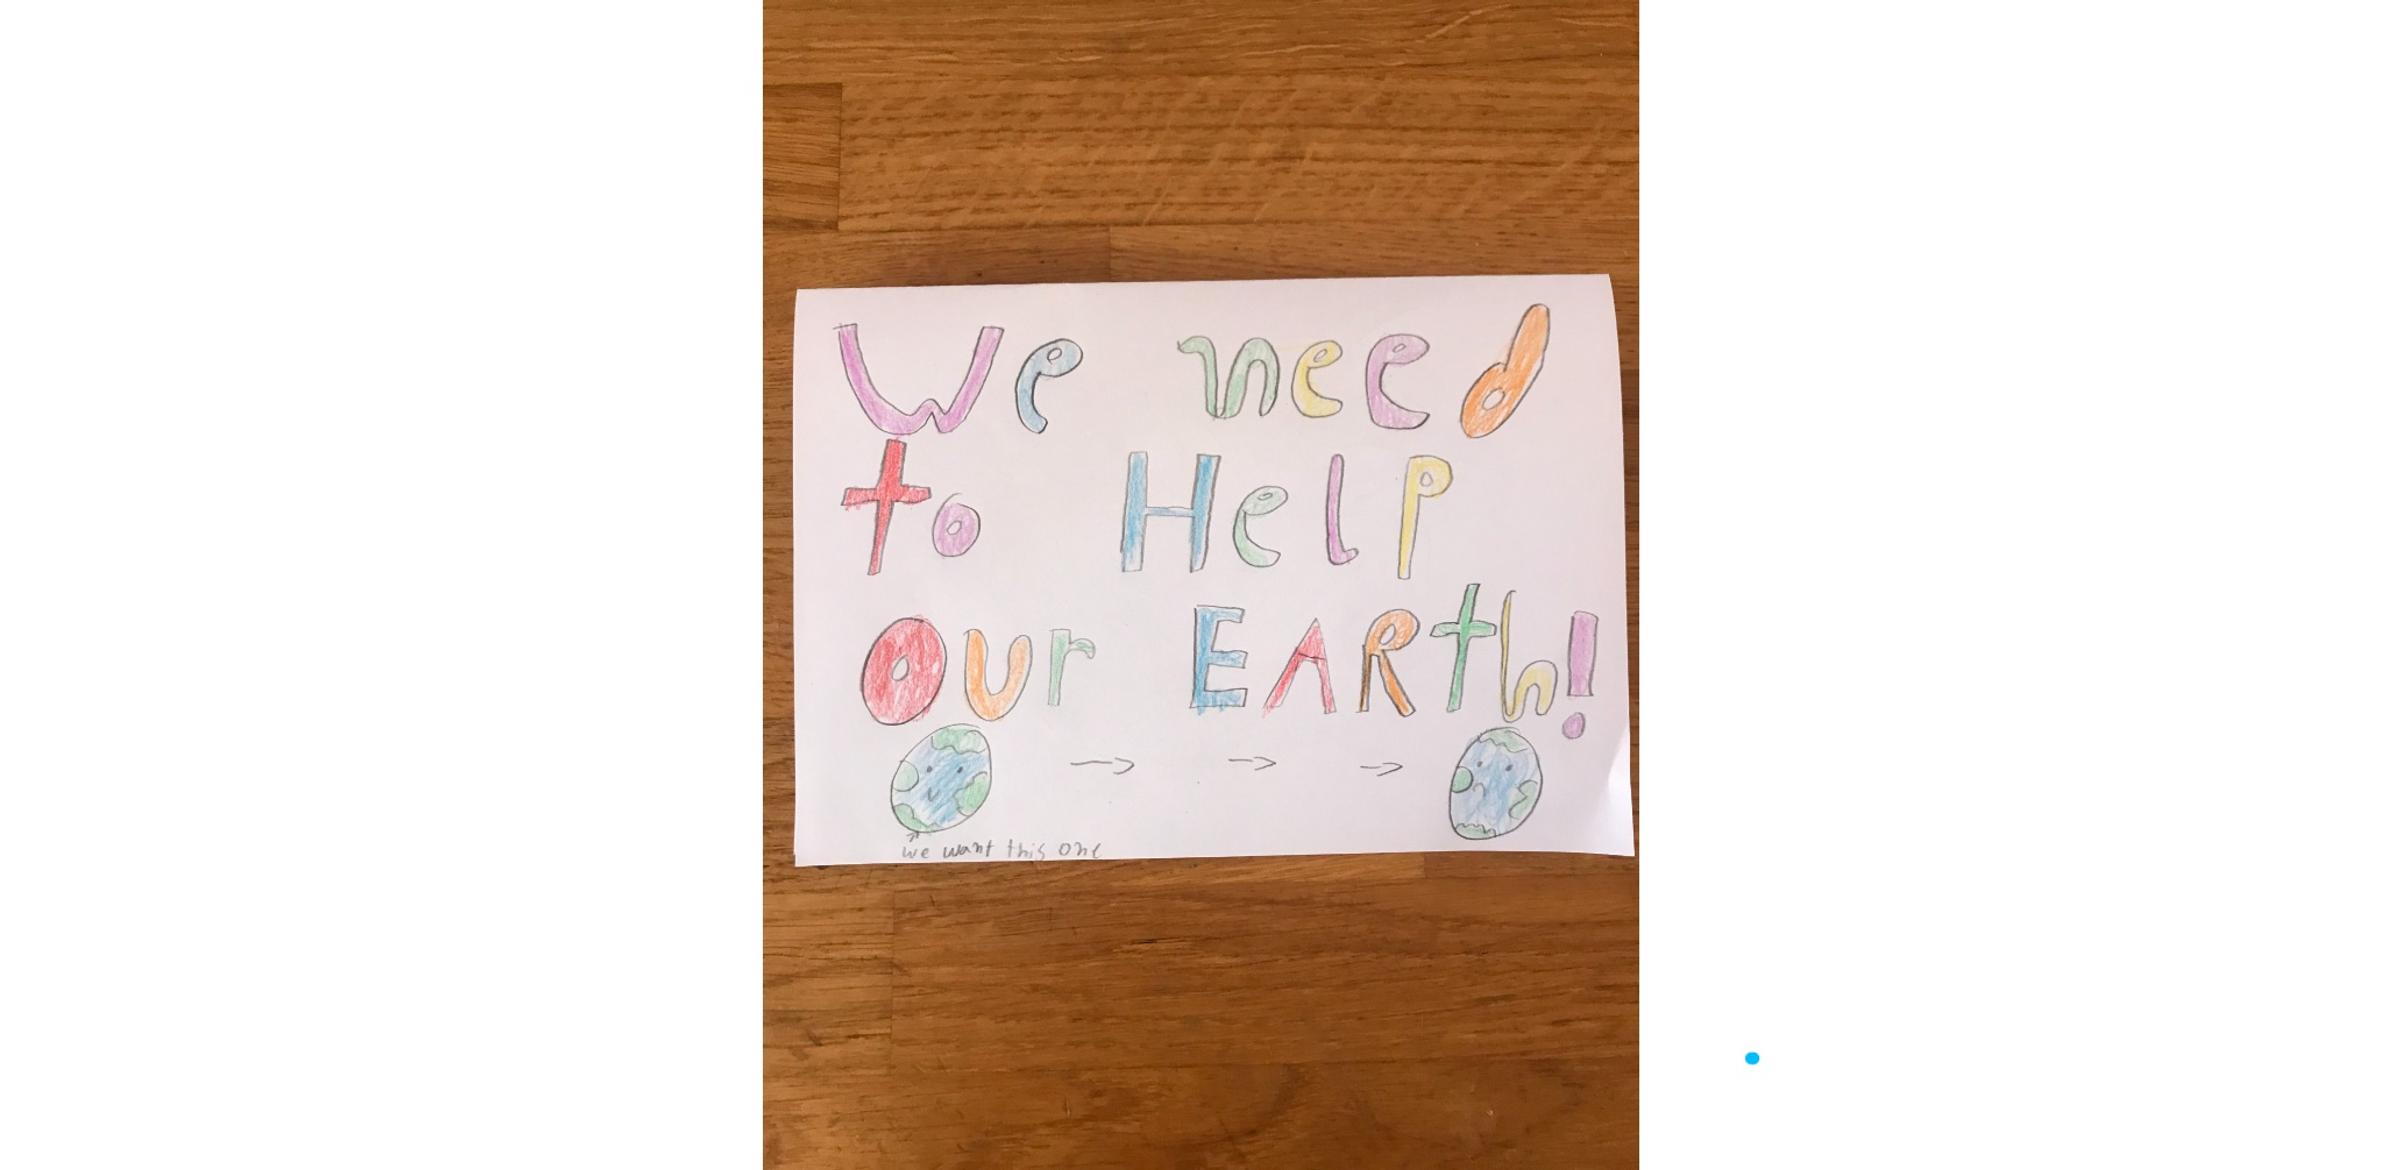 We need
to Help
our EARth!
we want this one